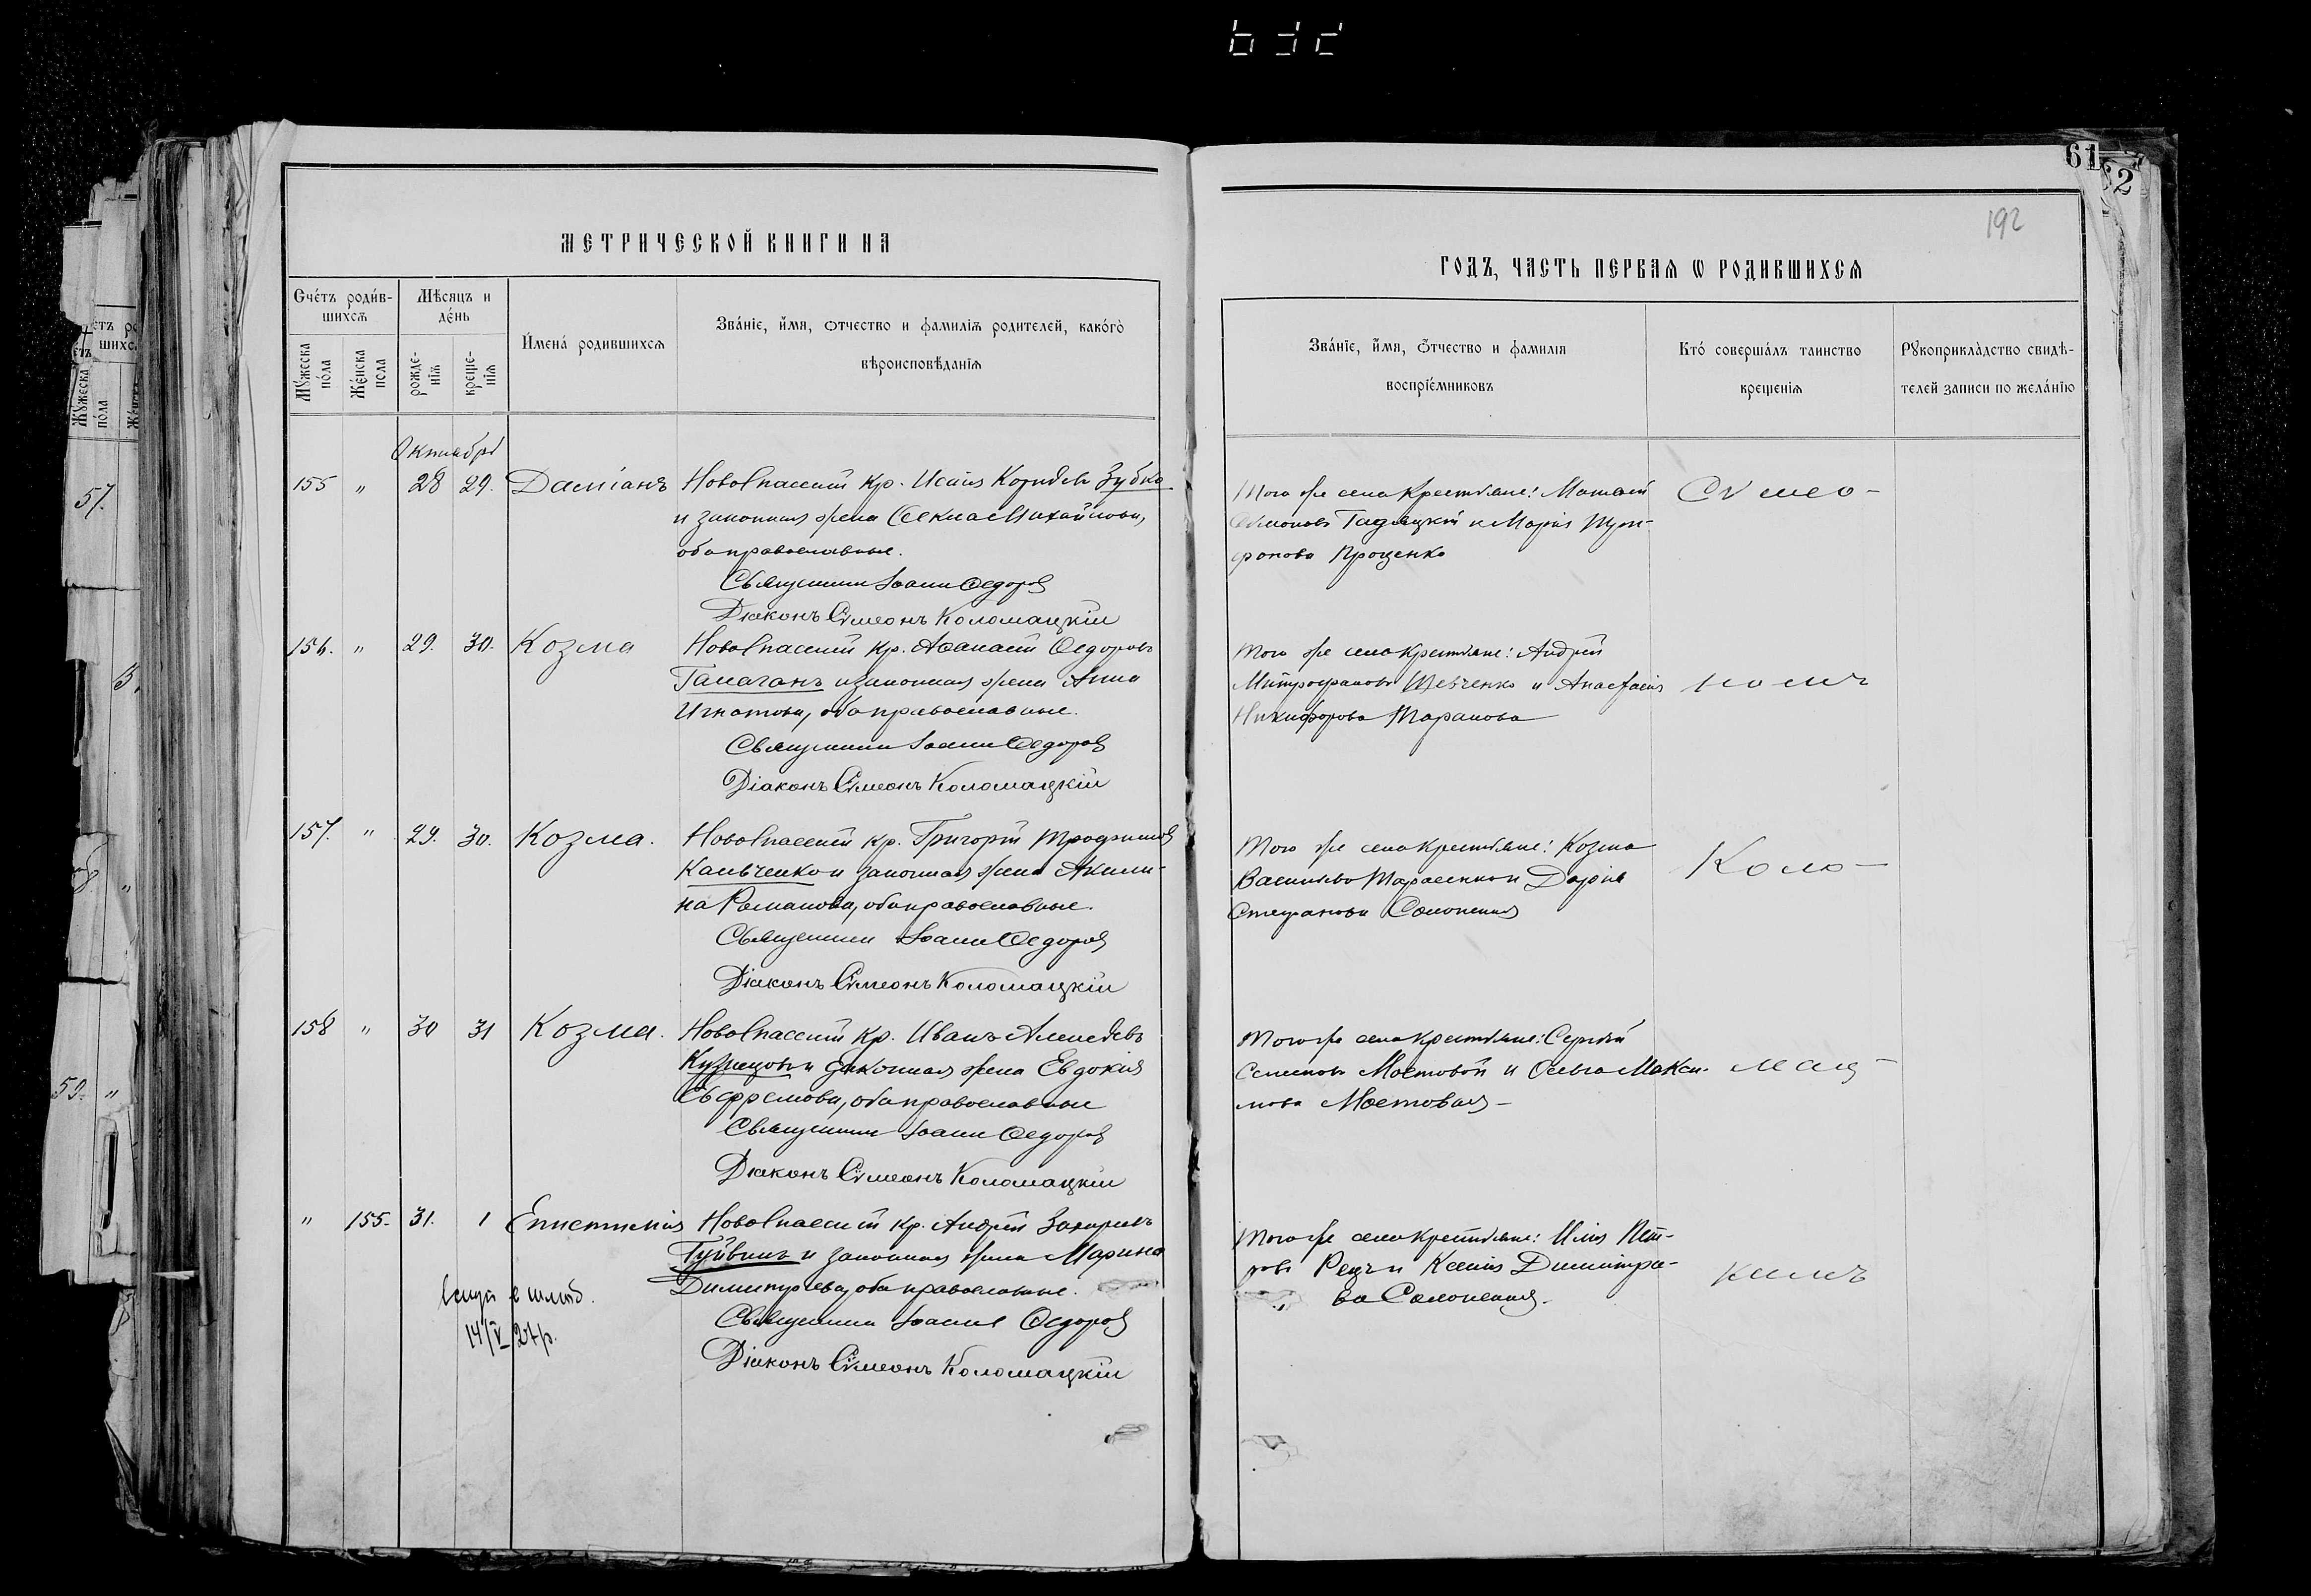 61
2
192
МЕТРИЧЕСКОЙ КНИГИ НА
ГОДЪ, ЧАСТЬ ПЕРВАѦ Ѡ РОДИВШИХСѦ
Счéтъ роди́в-
шихсѧ
Мѣсяцъ и
де́нь
И҆мена́ родившихсѧ
Зва́нїе, и҆́мя, ѻтчество и фамилїѧ родителей, како́гѡ
вѣроисповѣ́данїѧ
Мꙋ́жеска
по́ла
Же́нска
пола
рожде-
нїѧ
креще-
нїѧ
Зва́нїе, и҆́мя, ѻтчество и фамилїѧ
воспрїе́мниковъ
Кто́ соверша́лъ таинство
крещенїѧ
Рꙋкоприкла̀дство свидѣ-
телей записи по жела́нїю
Октября
155 " 28 29. Даміанъ НовоСпасскій кр. Исаія Корнѣевъ Зубко
и законная жена Ѳекла Михайлова,
оба православные.
Священникъ Іоаннъ Ѳедоровъ
Діаконъ Сѵмеонъ Коломацкій
Того же села крестьяне: Матвѣй
Гадяцкій и Марія Три-
фонова Проценко
Сѵмео-
156. " 29. 30. Козма НовоСпасскій кр. Аѳанасій Ѳедоровъ
Гамаганъ и законная жена Анна
Игнатова, оба православные.
Священникъ Іоаннъ Ѳедоровъ
Діаконъ Сѵмеонъ Коломацкій
Того же села крестьяне: Андрей
Митрофановъ Шевченко и Анастасія
Никифорова Таранова
номъ
157. " 29. 30. Козма. НовоСпасскій кр. Григорій Трофимовъ
Кальченко и законная жена Акили-
на Романова, оба православные.
Священникъ Іоаннъ Ѳедоровъ
Діаконъ Сѵмеонъ Коломацкій
Того же села крестьяне: Козма
Васильевъ Тарасенко и Дарія
Стефанова Солоненкоя
Коло-
158 " 30 31 Козма. НовоСпасскій кр. Иванъ Алексѣевъ
Кузнецовъ и законная жена Евдокія
Евфремова, оба православные
Священникъ Іоаннъ Ѳедоровъ
Діаконъ Сѵмеонъ Коломацкій
Того же села крестьяне: Сергѣй
Семеновъ Мостовой и Ѳекла Макси-
мова Мостовая
мац-
" 155. 31. 1 Епистимія НовоСпасскій кр. Андрей Захаріевъ
Гуйвинъ и законная жена Марина
Димитріева, оба православные.
Священникъ Іоаннъ Ѳедоровъ
Діаконъ Сѵмеонъ Коломацкій
14/V 27р.
Того же села крестьяне: Илія Пет-
ровъ Рецъ и Ксенія Димитріе-
ва
кимъ
57.
59. "